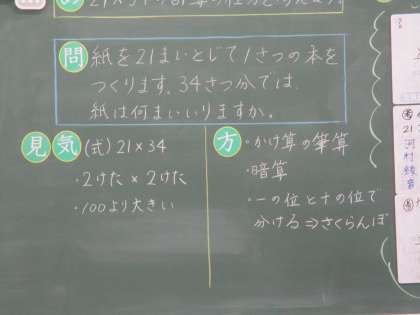 21×34の計算の仕方を考えよう。
問 紙を21まいとじて1さつの本を
つくります。34さつ分では、
紙は何まいいりますか。
見 気 (式) 21×34
・2けた×2けた
・100より大きい
方 ・かけ算の筆算
・暗算
・一の位と十の位で
分ける⇒さくらんぼ
21
河村